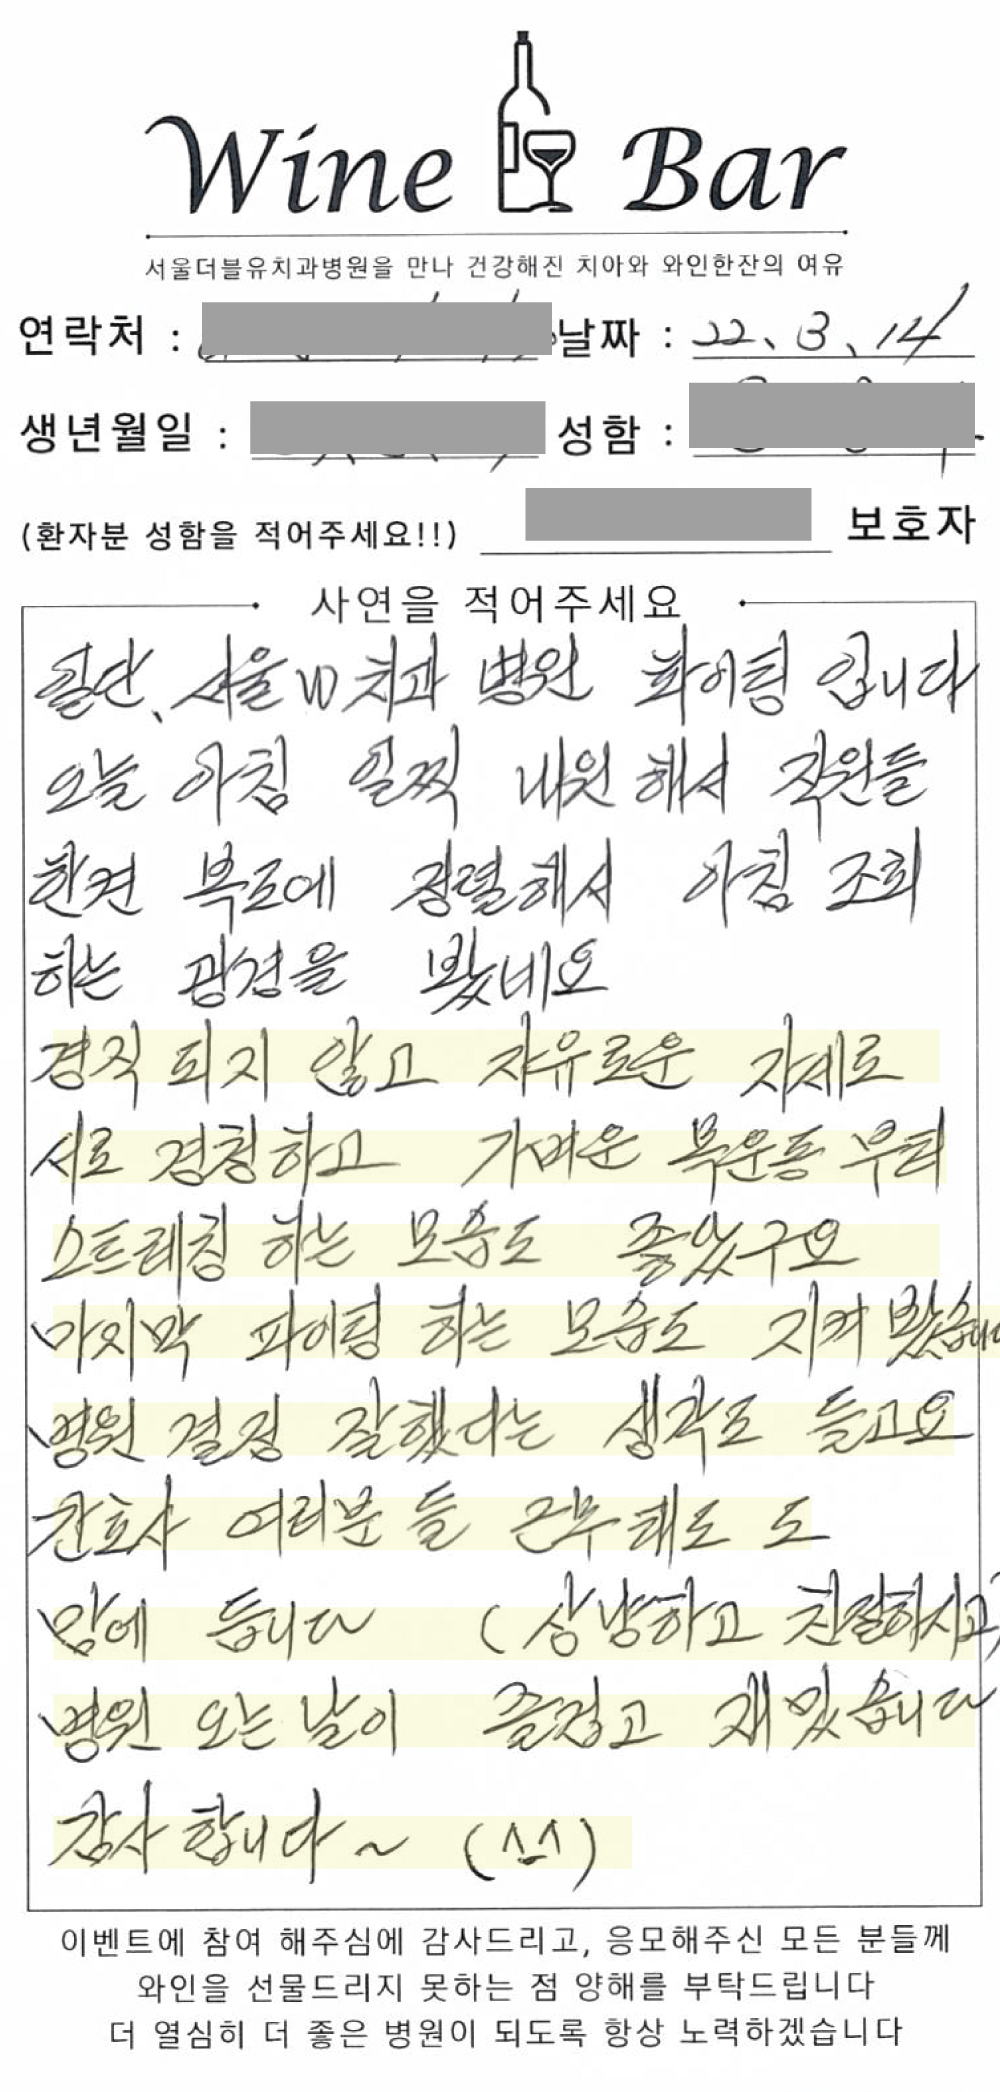 Wine Bar
서울더블유치과병원을 만나 건강해진 치아와 와인한잔의 여유
연락처 : 날짜 : 22. 3. 14
생년월일 : 성함 :
(환자분 성함을 적어주세요!!) 보호자
사연을 적어주세요
일단, 서울W치과 병원 화이팅 입니다
오늘 아침 일찍 내원해서 직원들
한켠 복도에 정렬해서 아침 조회
하는 광경을 봤네요
경직 되지 않고 자유로운 자세로
서로 경청하고 가벼운 목운동 부터
스트레칭 하는 모습도 좋았구요
마지막 파이팅 하는 모습도 지켜 봤습니다
병원 결정 잘했다는 생각도 들고요
간호사 여러분들 근무태도 도
맘에 듭니다 (상냥하고 친절하시고)
병원 오는 날이 즐겁고 재밌습니다
감사합니다~ (^-^)
이벤트에 참여 해주심에 감사드리고, 응모해주신 모든 분들께
와인을 선물드리지 못하는 점 양해를 부탁드립니다
더 열심히 더 좋은 병원이 되도록 항상 노력하겠습니다